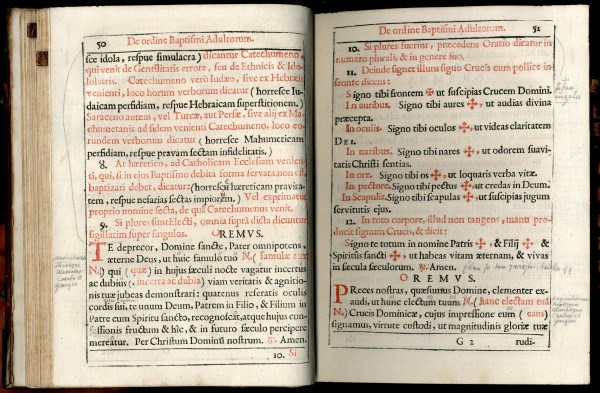 50 De ordine Baptismi Adultorum.
sce idola, respue simulacra) dicantur Catechumeno,
qui venit de Gentilitatis errore, seu de Ethnicis & Ido-
lolatris. Catechumeno verò Iudæo, sive ex Hebræis
venienti, loco horum verborum dicatur (horresce Iu-
daicam perfidiam, respue Hebraicam superstitionem.)
Saraceno autem, vel Turcæ, aut Persæ, sive alij ex Ma-
chumetanis ad fidem venienti Catechumeno, loco eo-
rundem verborum dicatur (horresce Mahumeticam
perfidiam, respue pravam sectam infidelitatis.)
8. At hæretico, ad Catholicam Ecclesiam venien-
ti, qui, si in ejus Baptismo debita forma servata non est,
baptizari debet, dicatur (horresce hæreticam pravita-
tem, respue nefarias sectas impiorum) Vel exprimatur
proprio nomine secta, de qua Catechumenus venit.
9. Si plures sunt Electi, omnia supra dicta dicantur
sigillatim super singulos. OREMVS.
TE deprecor, Domine sancte, Pater omnipotens,
æterne Deus, ut huic famulo tuo N. (famulæ tuæ
N.) qui (quæ) in hujus sæculi nocte vagatur incertus
ac dubius (incerta ac dubia) viam veritatis & agnitio-
nis tuæ jubeas demonstrari: quatenus reseratis oculis
cordis sui, te unum Deum, Patrem in Filio, & Filium in
Patre cum Spiritu sancto, recognoscat, atque hujus con-
fessionis fructum & hîc, & in futuro sæculo percipere
mereatur. Per Christum Dominũ nostrum. ℟. Amen.
10. Si
De ordine Baptismi Adultorum. 51
10. Si plures fuerint, præcedens Oratio dicatur in
numero plurali, & in genere suo.
11. Deinde signet illum signo Crucis cum pollice in
fronte dicens:
Signo tibi frontem ✠ ut suscipias Crucem Domini.
In auribus. Signo tibi aures ✠, ut audias divina
præcepta.
In oculis. Signo tibi oculos ✠, ut videas claritatem
DEI.
In naribus. Signo tibi nares ✠, ut odorem suavi-
tatis Christi sentias.
In ore. Signo tibi os ✠, ut loquaris verba vitæ.
In pectore. Signo tibi pectus ✠, ut credas in Deum.
In Scapulis. Signo tibi scapulas ✠, ut suscipias jugum
servitutis ejus.
12. In toto corpore, illud non tangens, manu pro-
ducit signum Crucis, & dicit:
Signo te totum in nomine Patris ✠, & Filij ✠, &
Spiritus sancti ✠, ut habeas vitam æternam, & vivas
in sæcula sæculorum. ℟. Amen.
OREMVS.
PReces nostras, quæsumus Domine, clementer ex-
audi, ut hunc electum tuum N. (hanc electam tuam
N.) Crucis Dominicæ, cujus impressione eum (eam)
signamus, virtute custodi, ut magnitudinis gloriæ tuæ
G 2 rudi-